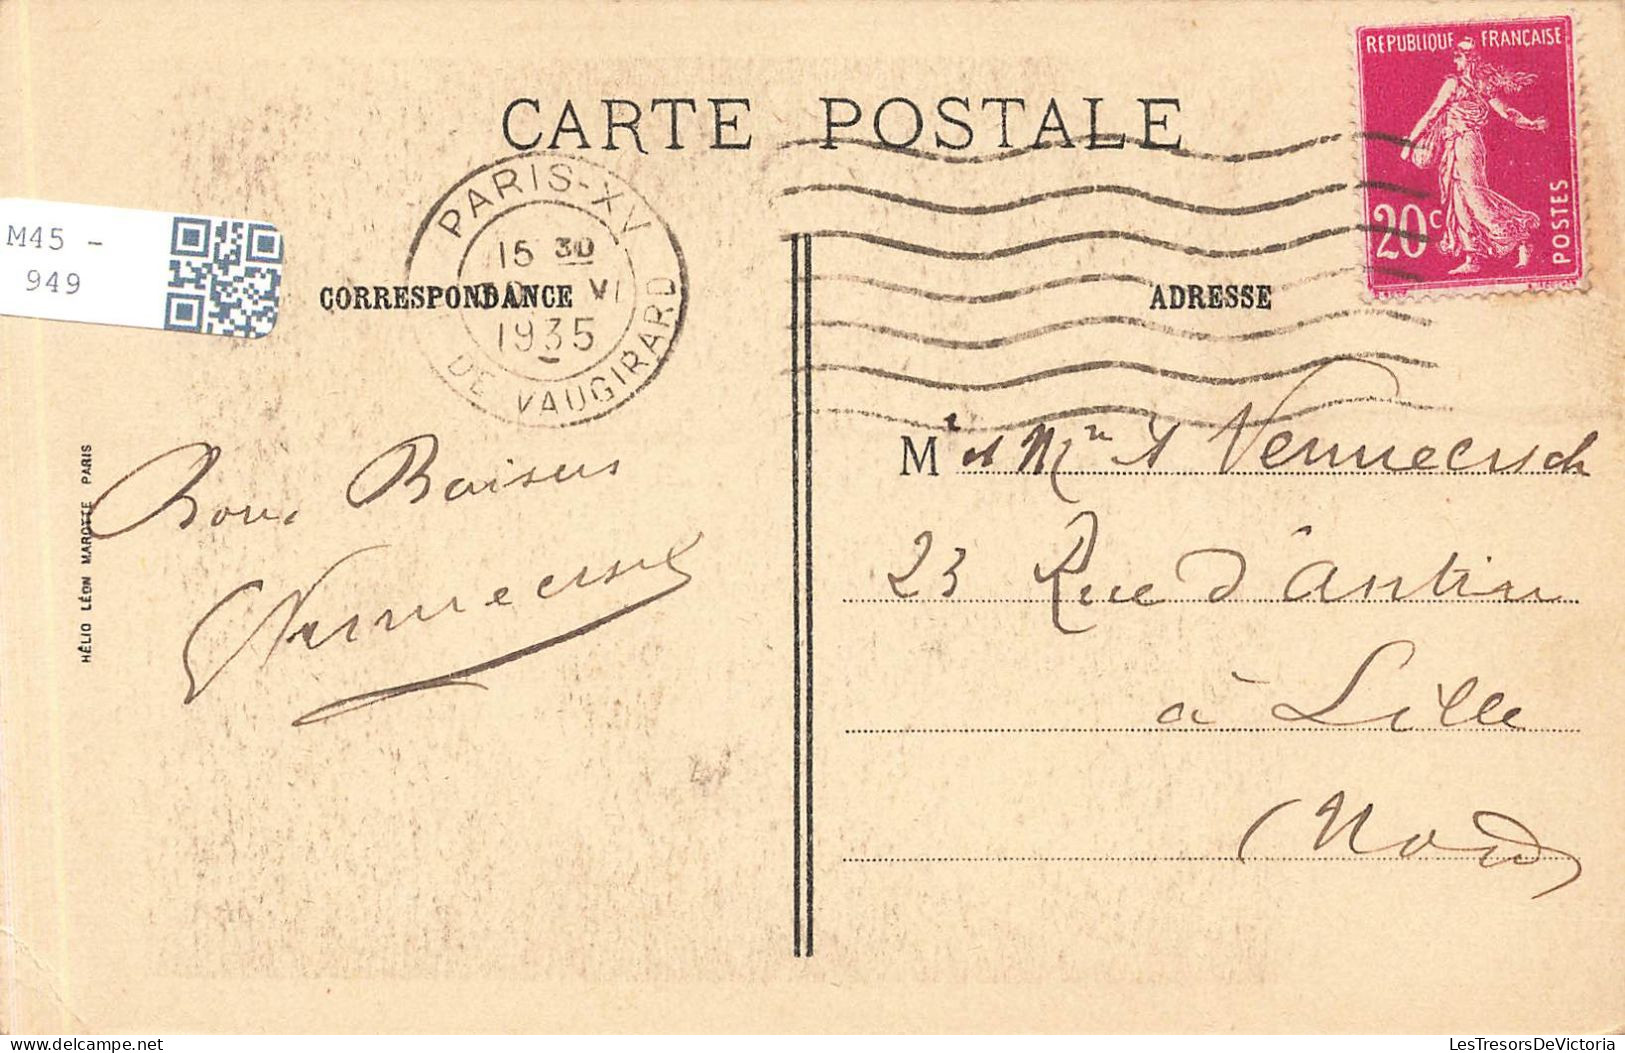 REPUBLIQUE FRANÇAISE
20c
POSTES
CARTE POSTALE
PARIS-XV
15 30
VI
1935
DE VAUGIRARD
M45 -
949
CORRESPONDANCE
ADRESSE
HÉLIO LÉON MAROTTE PARIS
Bons Baisers
Vermeersch
Mr et Mme A Vermeersch
23 Rue d'Antin
à Lille
(Nord)
delcampe.net
LesTresorsDeVictoria